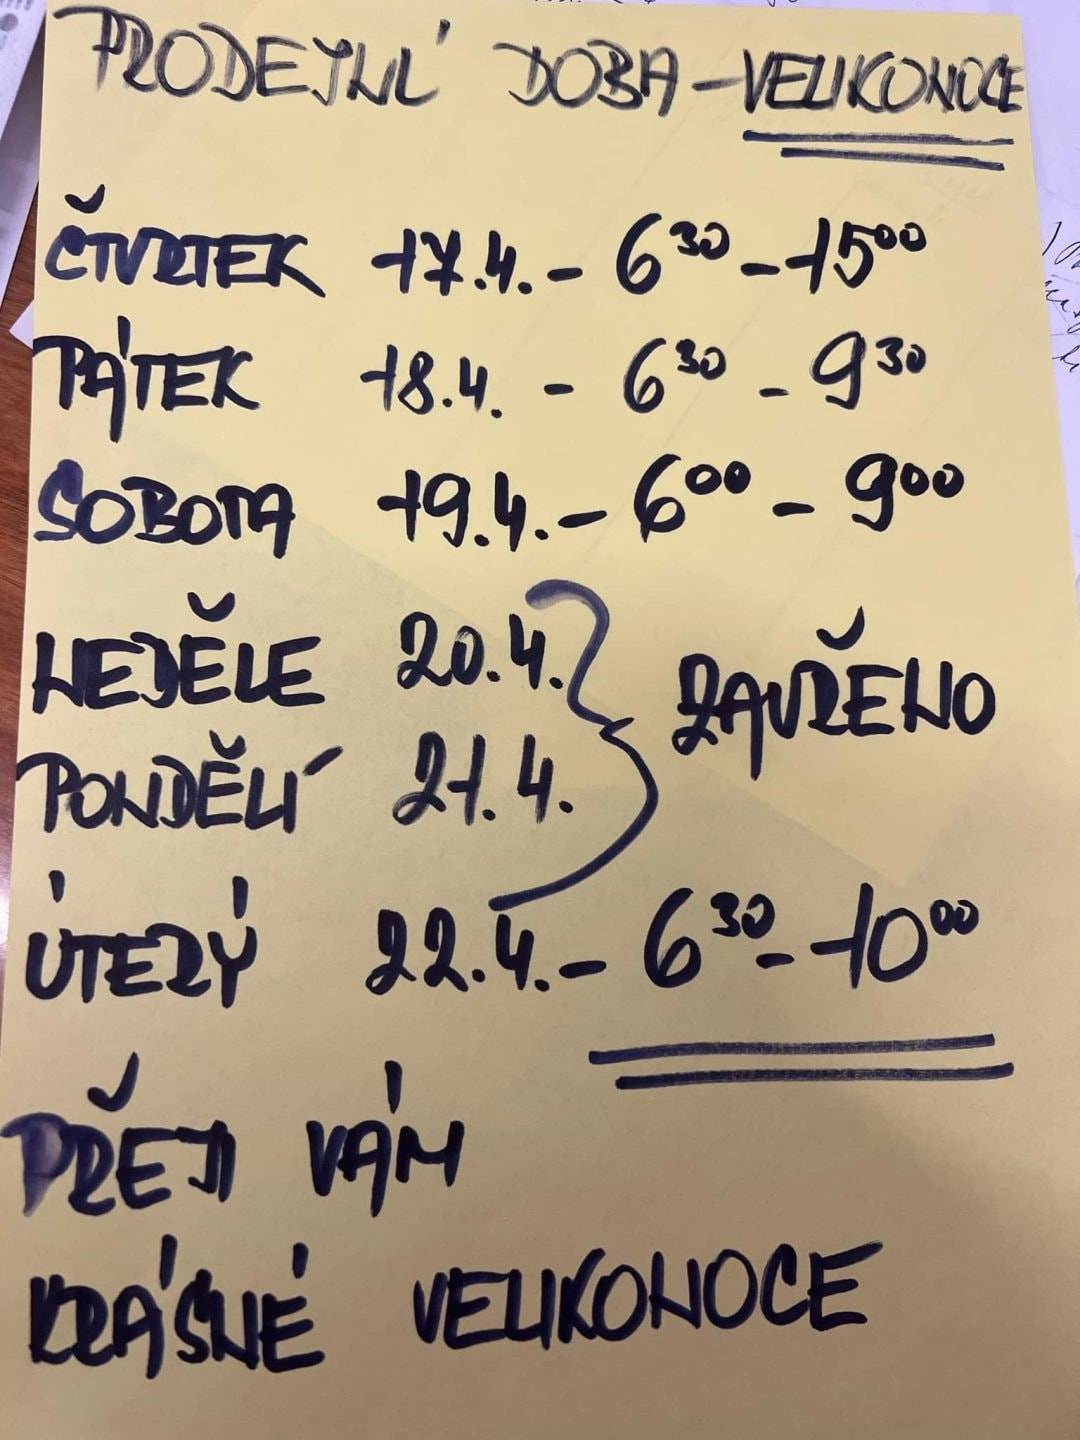 PRODEJNÍ DOBA - VELIKONOCE
ČTVRTEK 17.4. - 6³⁰ - 15⁰⁰
PÁTEK 18.4. - 6³⁰ - 9³⁰
SOBOTA 19.4. - 6⁰⁰ - 9⁰⁰
NEDĚLE 20.4.
PONDĚLÍ 21.4.
} ZAVŘENO
ÚTERÝ 22.4. - 6³⁰ - 10⁰⁰
PŘEJI VÁM
KRÁSNÉ VELIKONOCE